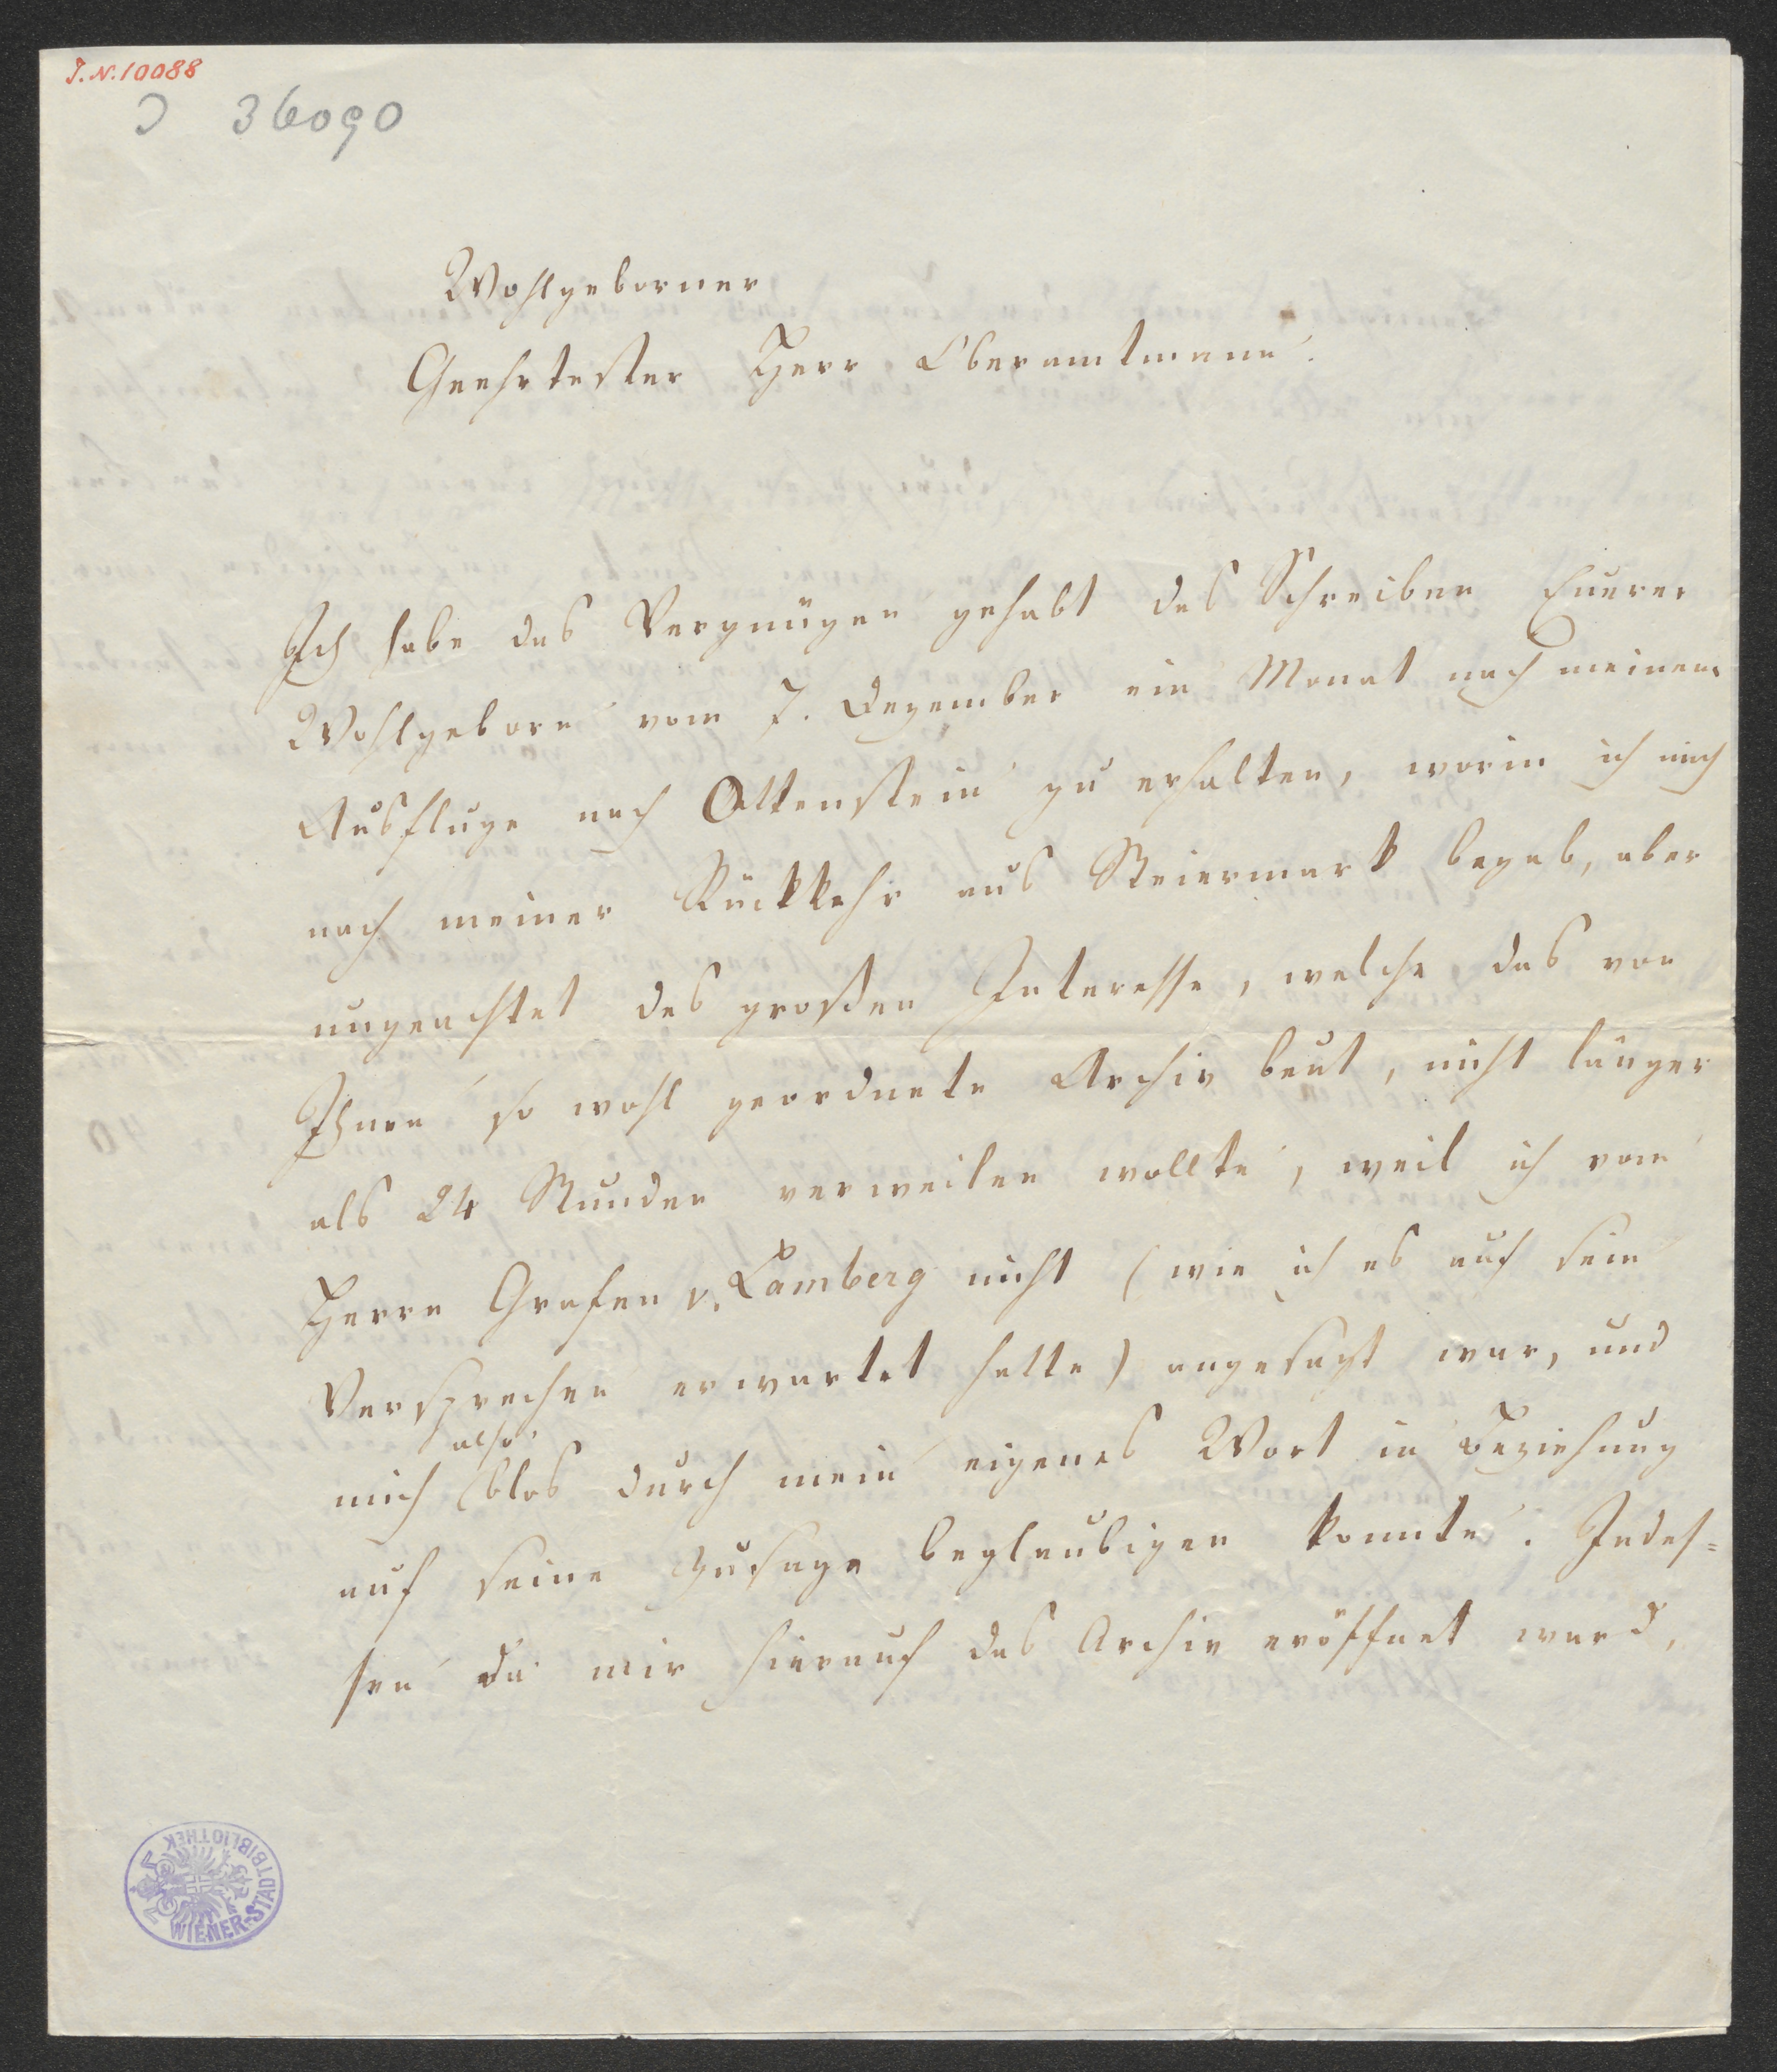 I.N. 10088
J 36090
Wohlgeborner
Geehrtester Herr Oberamtmann.
Ich habe das Vergnügen gehabt das Schreiben Euerer
Wohlgeborn vom 7. Dezember ein Monat nach meinem
Ausfluge nach Ottenstein zu erhalten, worin ich mich
nach meiner Rückkehr aus Steiermark begab, aber
ungeachtet des großen Interesse, welche das von
Ihnen so wohl geordnete Archiv beut, nicht länger
als 24 Stunden verweilen wollte, weil ich vom
Herrn Grafen v. Lamberg nicht (wie ich es auf sein
Versprechen erwartet hatte) angesagt war, und
also
mich blos durch mein eigenes Wort in Beziehung
auf seine Zusage beglaubigen konnte. Indes=
sen da mir hierauf das Archiv eröffnet ward,
WIENER-STADTBIBLIOTHEK